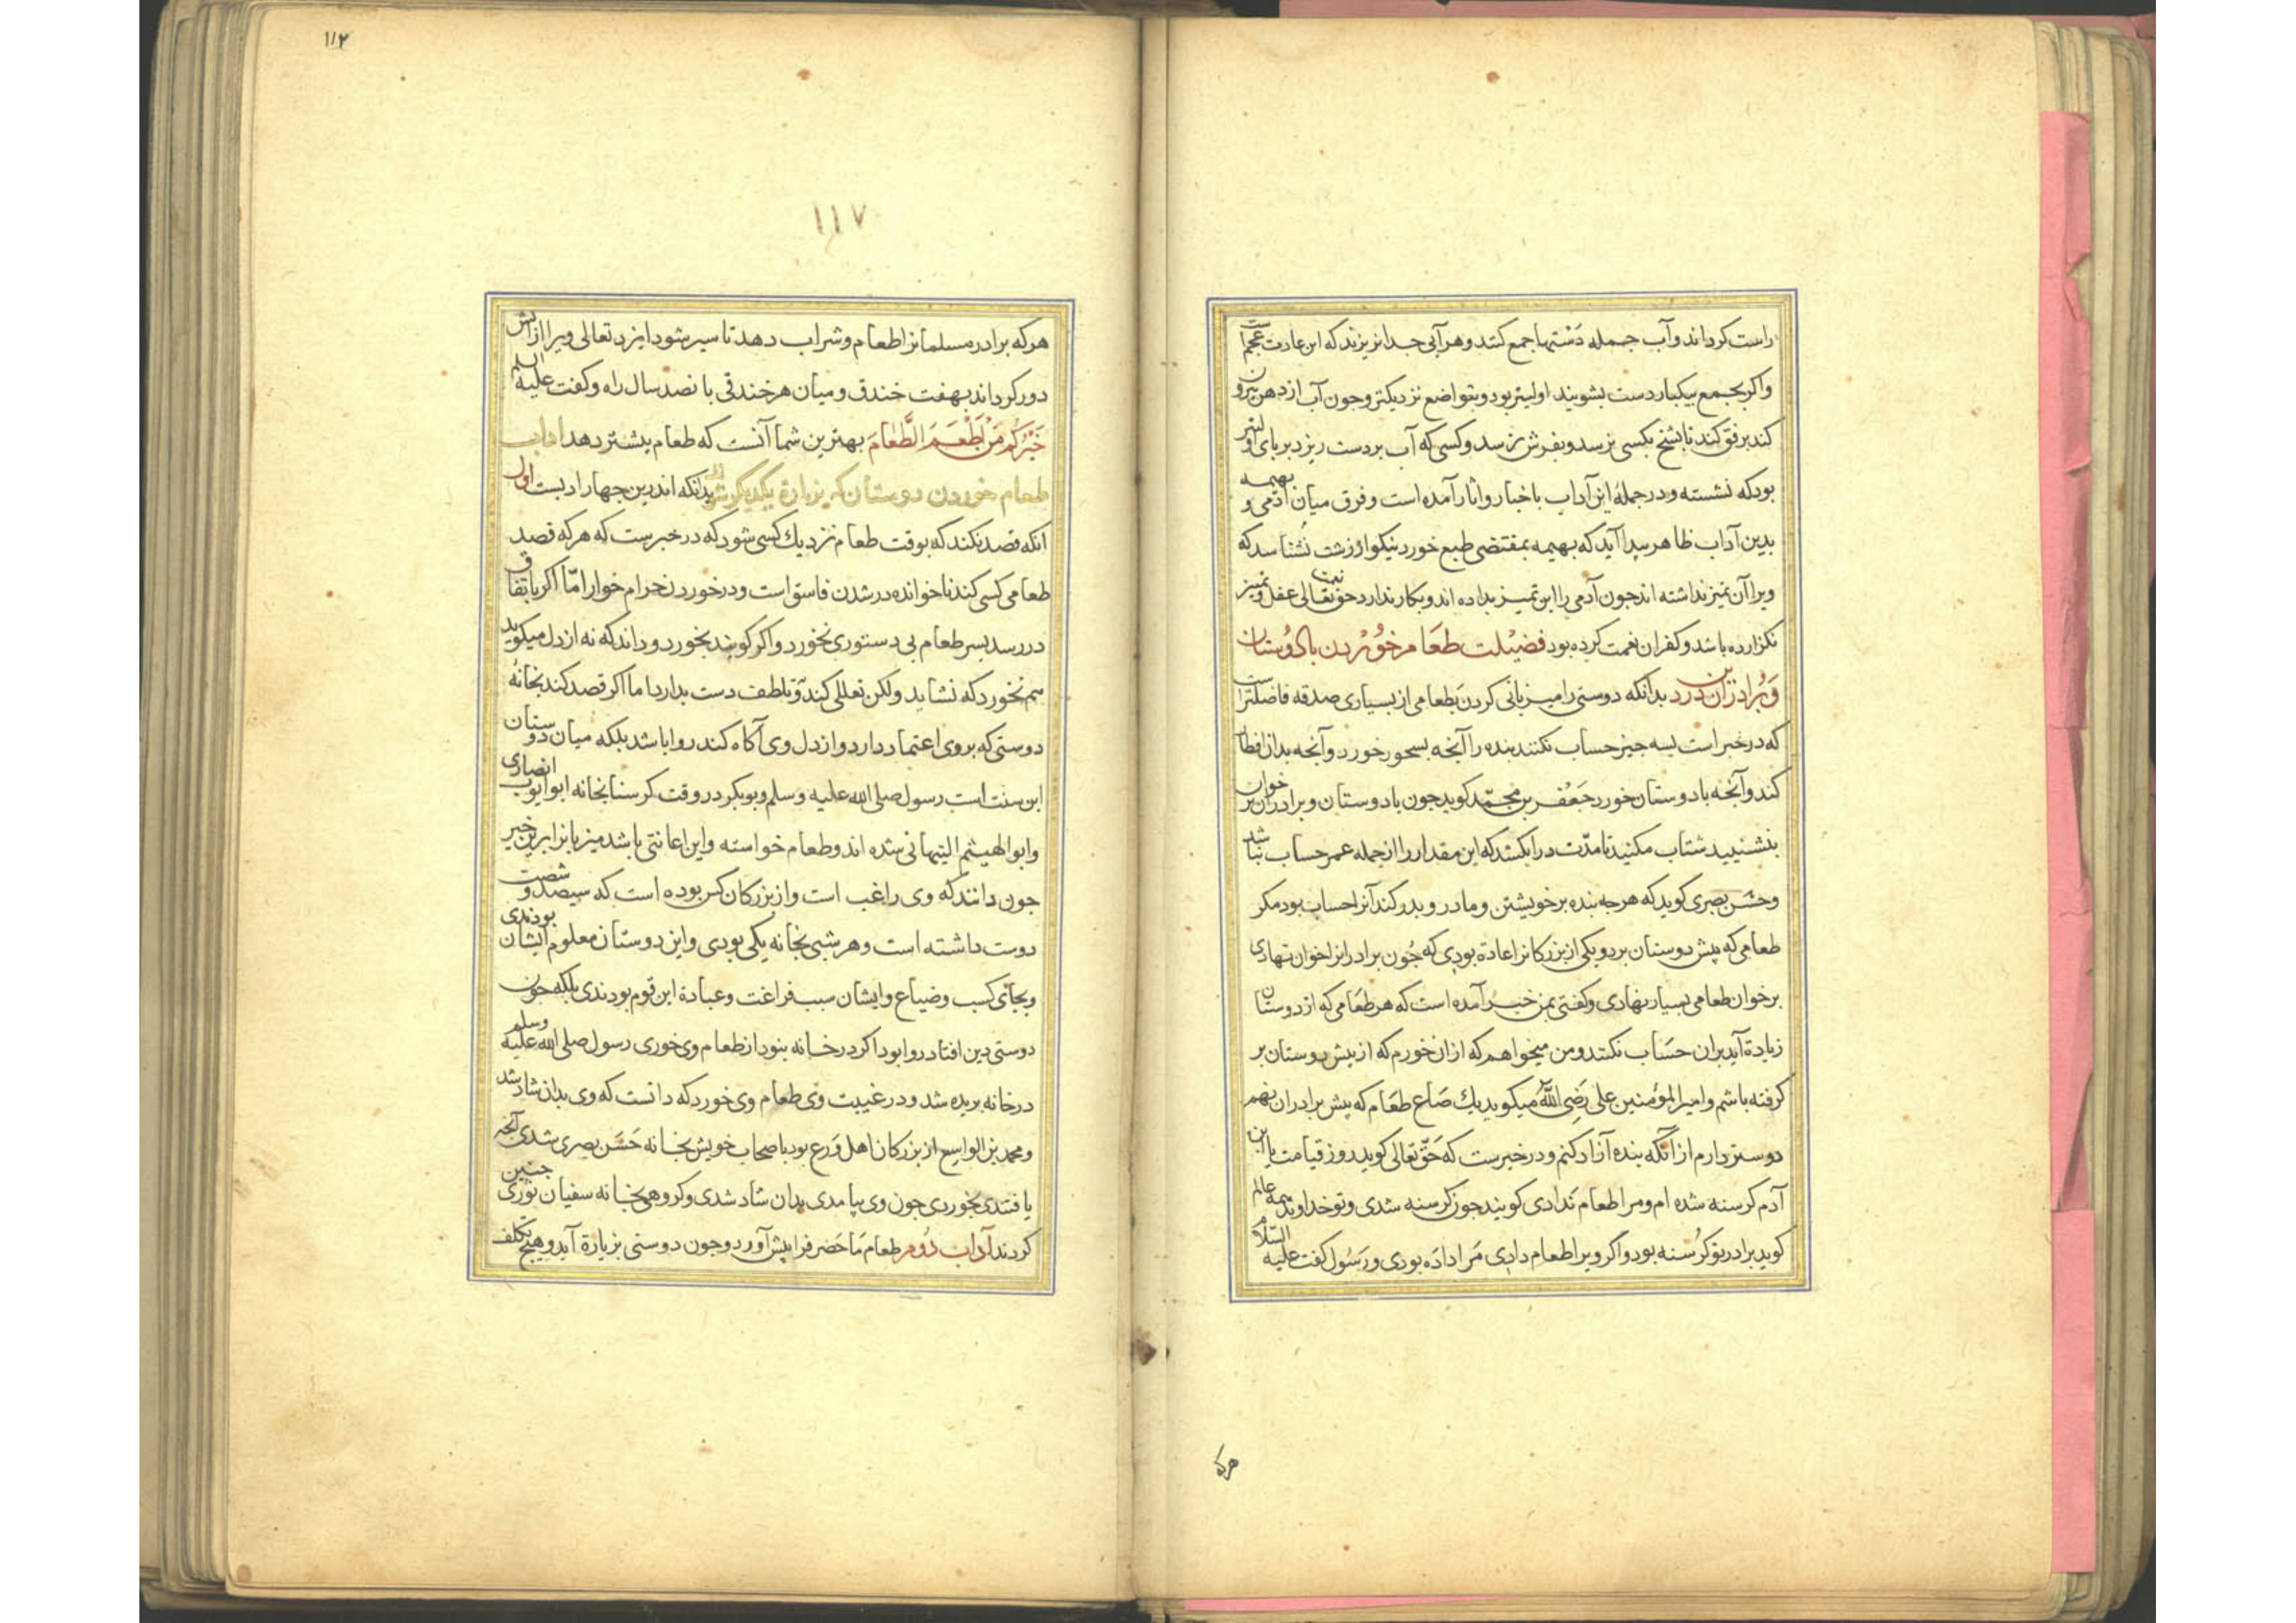 راست کرداند و آب جمله دستها جمع کنند و هر آبی جدا نریزند که این عادت عجم است
واکر بجمع بیکبار دست بشویند اولیتر بود و بتواضع نزدیکتر و جون آب از دهن بیرون
کند برفق کند تا بشنج بکسی نرسد و بفرش نرسد و کسی که آب بر دست ریزد بر پای اولیتر
بود که نشسته و در جملۀ این آداب باخبار و اثار آمده است و فرق میان آدمی و بهیمه
بدین آداب ظاهر پیدا آید که بهیمه بمقتضی طبع خورد نیکو از زشت نشناسد که
ویرا آن تمیز نداشته اند جون آدمی را این تمیز بداده اند و بکار ندارد حق نعمت تعالی عقل و تمیز
نکزارده باشد و کفران نعمت کرده بود فضیلت طعام خوردن با دوستان
و برادران در دین بدانکه دوستی را میزبانی کردن بطعامی از بسیاری صدقه فاضلتر است
که در خبر است بسه جیز حساب نکنند بنده را آنجه بسحور خورد و آنجه بدان افطار
کند و آنجه با دوستان خورد جعفر بن محمد کوید جون با دوستان و برادران بر خوان
بنشینید شتاب مکنید تا مدت درا بکشد که این مقدار را از جمله عمر حساب نباشد
و حسن بصری کوید که هر جه بنده بر خویشتن و مادر و بدر کند آنرا حساب بود مکر
طعامی که پیش دوستان برد و یکی از بزرکانرا عادة بودی که جون برادرانرا خوان نهادی
بر خوان طعامی بسیار نهادی و کفتی بمن خبر آمده است که هر طعامی که از دوستان
زیادة آید بران حساب نکنند و من میخواهم که ازان خورم که از بیش دوستان بر
کرفته باشم و امیر المؤمنین علی رضی الله میکوید یک صاع طعام که پیش برادران نهم
دوستر دارم از آنکه بنده آزاد کنم و در خبرست که حق تعالی کوید روز قیامت یا ابن
آدم کرسنه شده ام و مرا طعام ندادی کویند جون کرسنه شدی و تو خداوند همه عالم
کوید برادر تو کرسنه بود و اکر ویرا طعام دادی مرا داده بودی و رسول کفت علیه السلام
هرکه
۱۱۲
۱۱۷
هر که برادر مسلمانرا طعام و شراب دهد تا سیر شود ایزد تعالی ویرا از آتش
دور کرداند بهفت خندق و میان هر خندقی بانصد سال راه و کفت علیه السلم
خیرکم من اطعم الطعام بهترین شما آنست که طعام بیشتر دهد اداب
طعام خوردن دوستان که بزیارة یکدیکر شوند بدانکه اندرین جهار ادبست اول
انکه قصد نکند که بوقت طعام نزدیک کسی شود که در خبرست که هر که قصد
طعامی کسی کند ناخوانده در شدن فاسق است و در خوردن حرام خوار اما اکر باتفاق
در رسد بسر طعام بی دستوری نخورد و اکر کویند بخورد و داند که نه از دل میکوید
هم نخورد که نشاید ولکن تعللی کند و تلطف دست بدارد اما اکر قصد کند بخانۀ
دوستی که بر وی اعتماد دارد و از دل وی آکاه کند روا باشد بلکه میان دوستان
این سنت است رسول صلی الله علیه و سلم و بوبکر در وقت کرسنا بخانه ابوایوب انصاری
و ابوالهیثم التیهانی شده اند و طعام خواسته و این اعانتی باشد میزبانرا برین خیر
جون دانند که وی راغب است و از بزرکان کس بوده است که سیصد و شصت
دوست داشته است و هر شبی بخانه یکی بودی و این دوستان معلوم ایشان بودندی
و بجای کسب و ضیاع و ایشان سبب فراغت و عبادة این قوم بودندی بلکه جون
دوستی دین افتاد روا بود اکر در خانه بنود از طعام وی خوری رسول صلی الله علیه وسلم
در خانه بریده شد و در غیبت وی طعام وی خورد که دانست که وی بدان شاد شد
و محمد بن الواسع از بزرکان اهل ورع بود با صحاب خویش بخانه حسن بصری شدی آنجه
یافتندی بخوردی جون وی بیامدی بدان شاد شدی و کروهی بخانه سفیان ثوری جنین
کردند آداب دوم طعام ما حضر فرا پیش آورد و جون دوستی بزیارة آید و هیج تکلف